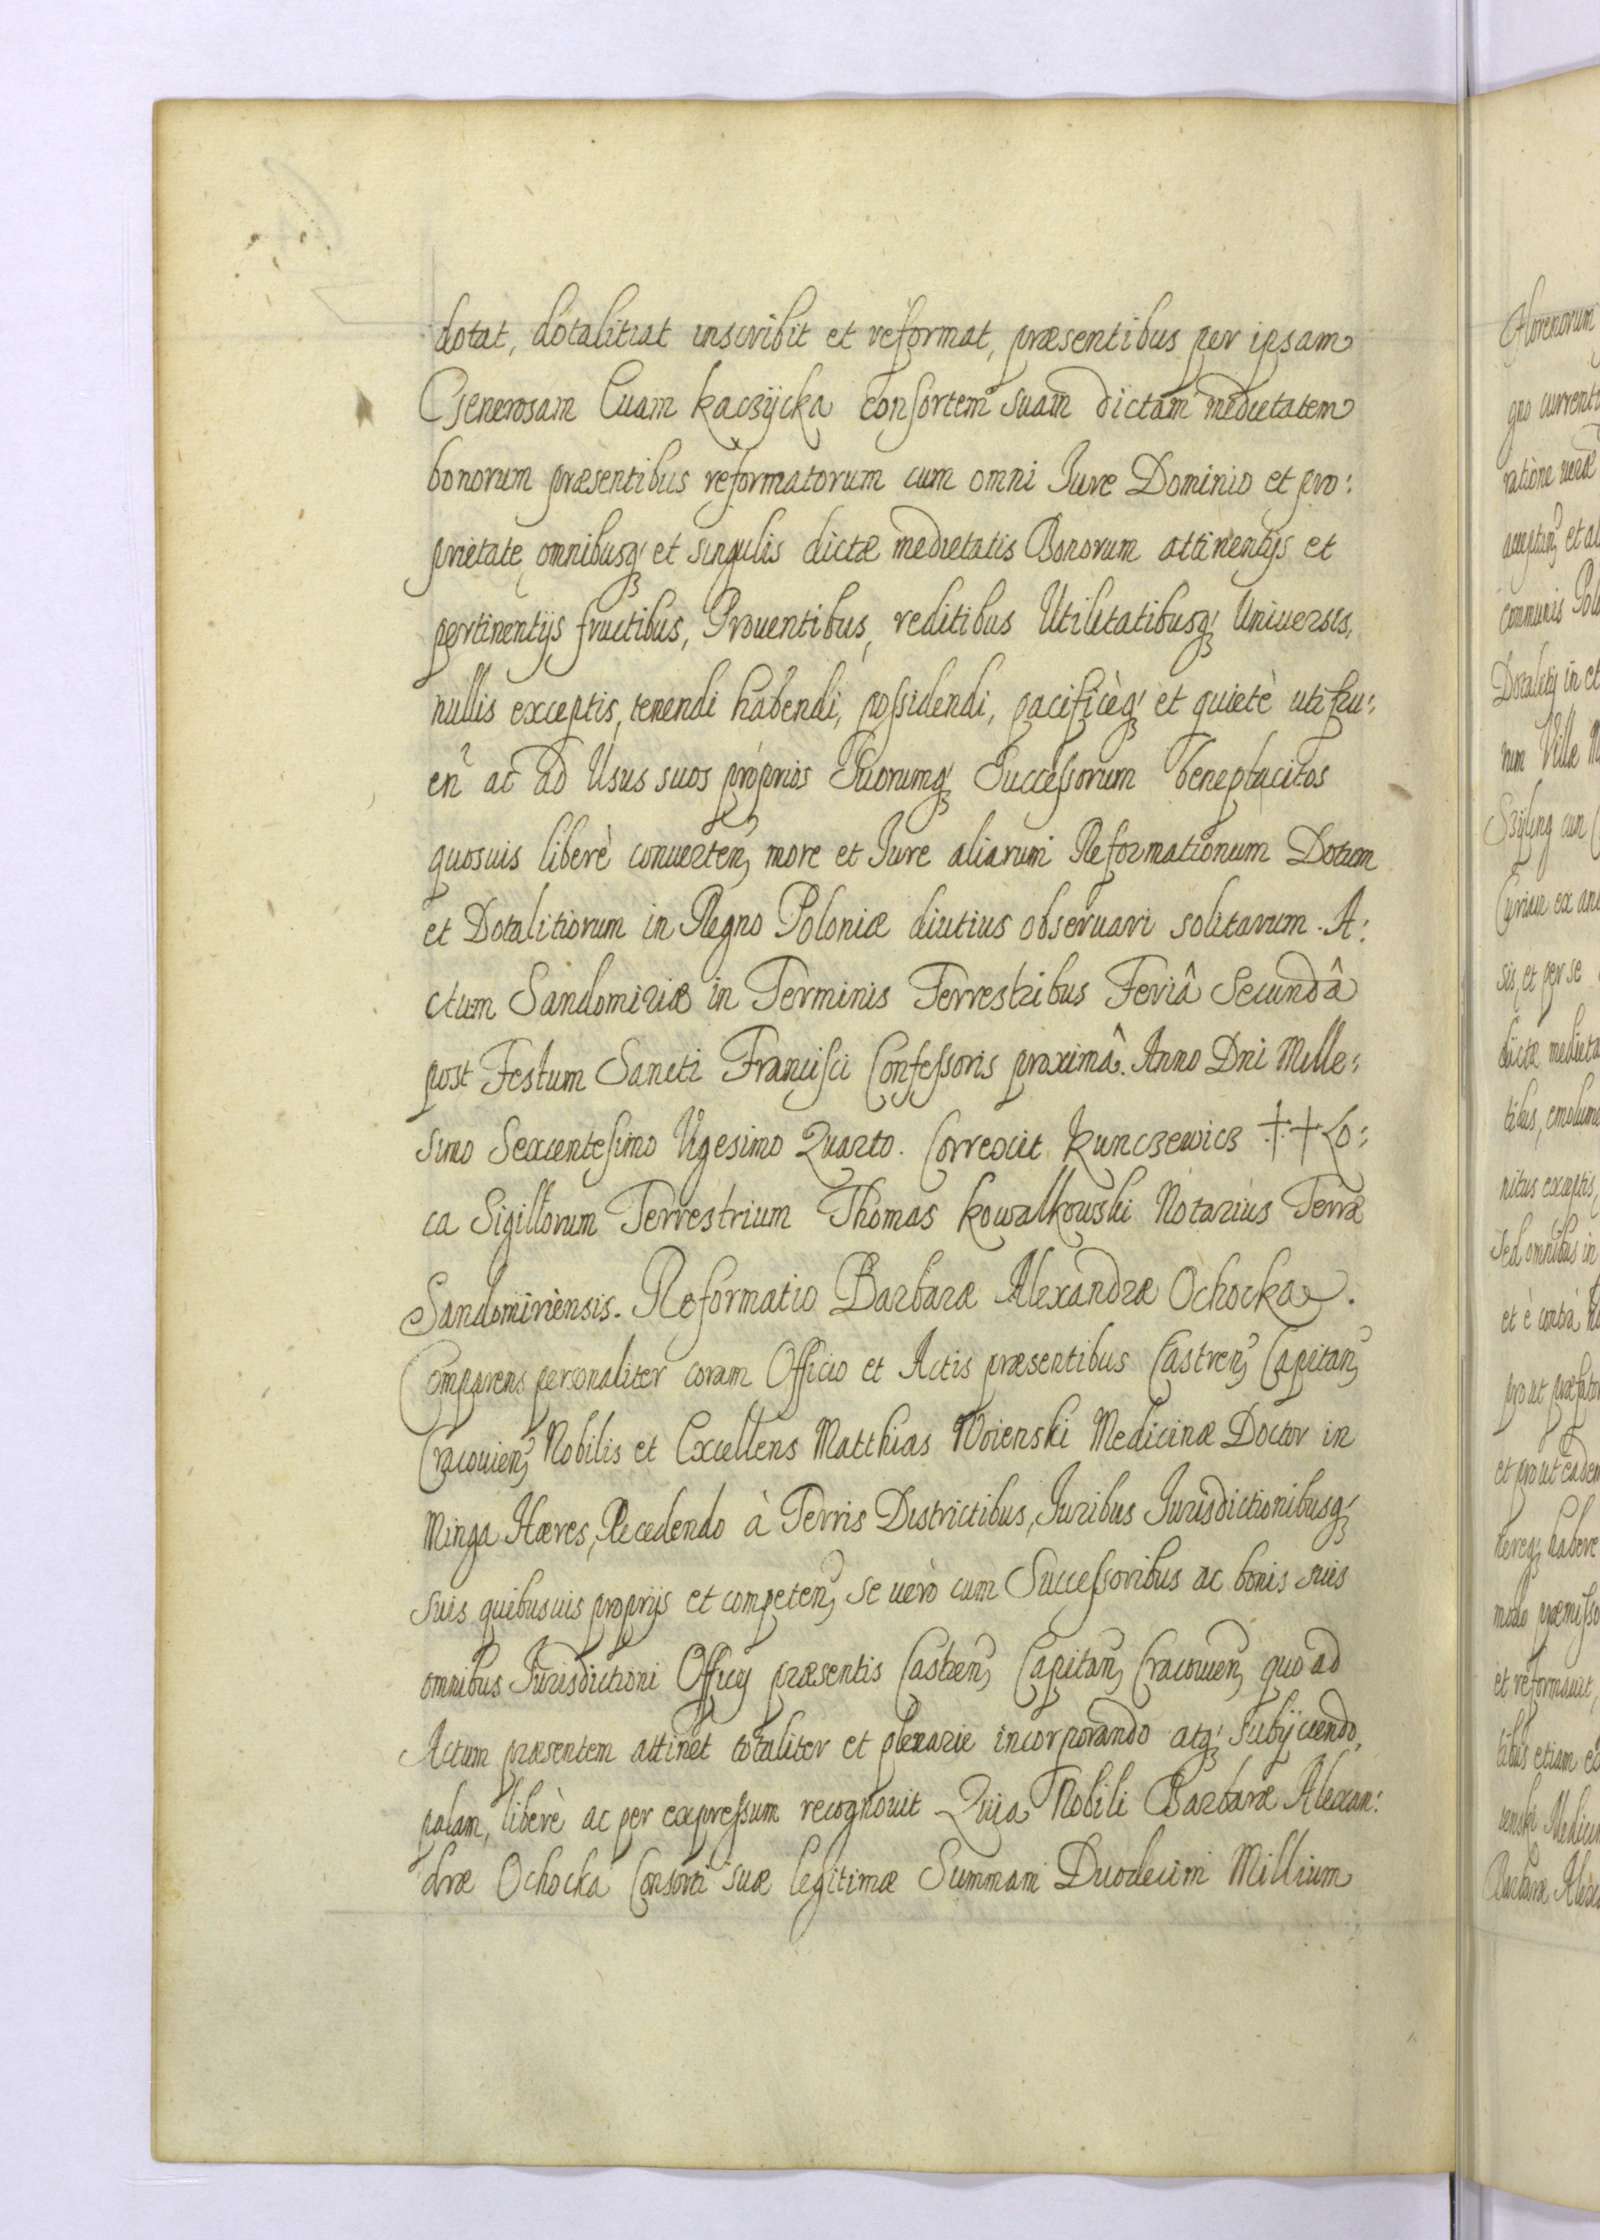 dotat, dotalitiat inscribit et reformat, præsentibus per ipsam
Generosam Euam Kaczÿcka consortem suam dictam medietatem
bonorum præsentibus reformatorum cum omni Iure Dominio et pro:
prietate omnibusq; et singulis dictæ medietatis Bonorum attinentijs et
pertinentijs fructibus, Prouentibus, reditibus Utilitatibusq; Uniuersis,
nullis exceptis, tenendi habendi, possidendi, pacificèq; et quietè uti fru:
en ac ad Usus suos próprios Suorumq; Successorum beneplacitos
quosuis liberè conuerten, more et Iure aliarum Reformationum Dotum
et Dotalitiorum in Regno Poloniæ diutius obseruari solitarum. A:
ctum Sandomiriæ in Terminis Terrestribus Feriâ Secundâ
post Festum Sancti Francisci Confessoris proximâ. Anno Dni Mille:
simo Sexcentesimo Vigesimo Quarto. Correxit Kunczewicz ++ Lo:
ca Sigillorum Terrestrium Thomas Kowalkowski Notarius Terræ
Sandomiriensis. Reformatio Barbaræ Alexandræ Ochocka.
Comparens personaliter coram Officio et Actis præsentibus Castren, Capitan,
Cracouien, Nobilis et Excellens Matthias Woienski Medicinæ Doctor in
Minga Hæres, Recedendo à Terris Districtibus, Iuribus Iurisdictionibusq;
suis quibusuis proprijs et competen, se uèro cum Successoribus ac bonis suis
omnibus Iurisdictioni Officij præsentis Castren, Capitan, Cracouien, quo ad
Actum præsentem attinet totaliter et plenarie incorporando atq; subijciendo,
palam, liberè ac per expressum recognouit Quia Nobili Barbaræ Alexan:
dræ Ochocka Consorti suæ legitimæ Summam Duodecim Millium